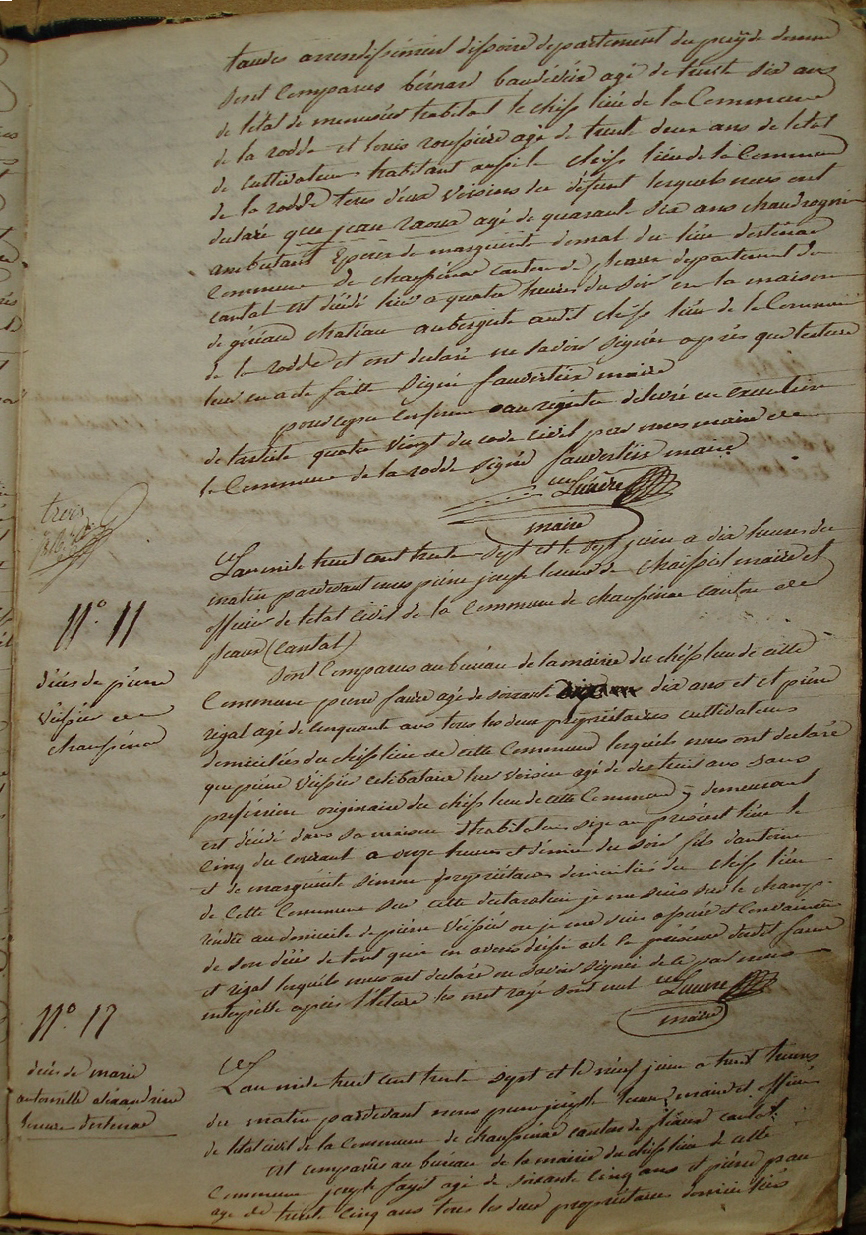 tandes arrondissement dissoire departement du puÿ de dome
sont Comparus bérnard baudéssir agé de trente six ans
de létat de menusier habitant le chiff liéu de la Commune
de la rodde et louis roussiére agé de trent deux ans de létat
de cultivateur habitant aussi le chiff liéu de la Commune
de la rodde tous deux voisins du défunt lesquels nous ont
declaré que jean raoux agé de quarant six ans chaudronnier
ambulant Epoux de marguerite domal du liéu destinac
Commune de chaussénac canton de pleaux departement du
cantal est décédé hier a quatre heures du soir en la maison
de géraud chatéau aubergiste audit chiff liéu de la Commune
de la rodde et ont declaré ne savoir signér aprés que lecture
leur en a été faitte signé sauvestiér maire
pour copie conforme au registre délivré en execution
de larticle quatre vingt du code civil par nous maire de
la Commune de la rodde signé sauvestiér maire
maire
trois
N° 11
décés de piérre
véissiér de
chaussénac
Lan mile huit cent trente sept et le sept juin a dix heures du
matin pardevant nous piérre joseph maire et
officier de létat civil de la Commune de chaussénac canton de
pleaux (cantal)
Sont Comparus au buréau de la mairie du chiff liéu de cette
Commune piérre faure agé de soixante dix ans et et piérre
rigal agé de cinquante ans tous les deux propriétaires cultivateurs
domiciliés du chiff liéu de cette Commune lesquels nous ont declaré
que piérre véissiér célibataire leur voisin agé de ans sans
proféssion originaire du chiff liéu de cette Commune y demeurant
est décédé dans sa maison dhabitation size au présent liéu le
cinq du courant a onze heures et démie du soir fils dantoine
et de marguérite simon propriétaires domiciliés du chiff liéu
de Cette Commune sur cette declaration je me suis sur le champ
rendu au domicile de piérre véissiér ou je me suis assuré et Convaincu
de son décés de tout quoi en avons dressé acte en présence dudit faure
et rigal lesquels nous ont declaré ne savoir signér de ce par nous
intérpéllé aprés lécture les mot rayé sont nul
maire
N° 12
décés de marie
antoinette aléxandrine
destinac
Lan mile huit cent trente sept et le neuf juin a huit heures
du matin pardevant nous piérre joseph maire et officiér
de létat civil de la Commune de chaussénac canton de pléaux cantal
ont comparûs au buréau de la mairie du chiff liéu de cette
Commune joseph fayet agé de soixante cinq ans et piérre
agé de trente cinq ans tous les deux propriétaires domiciliés